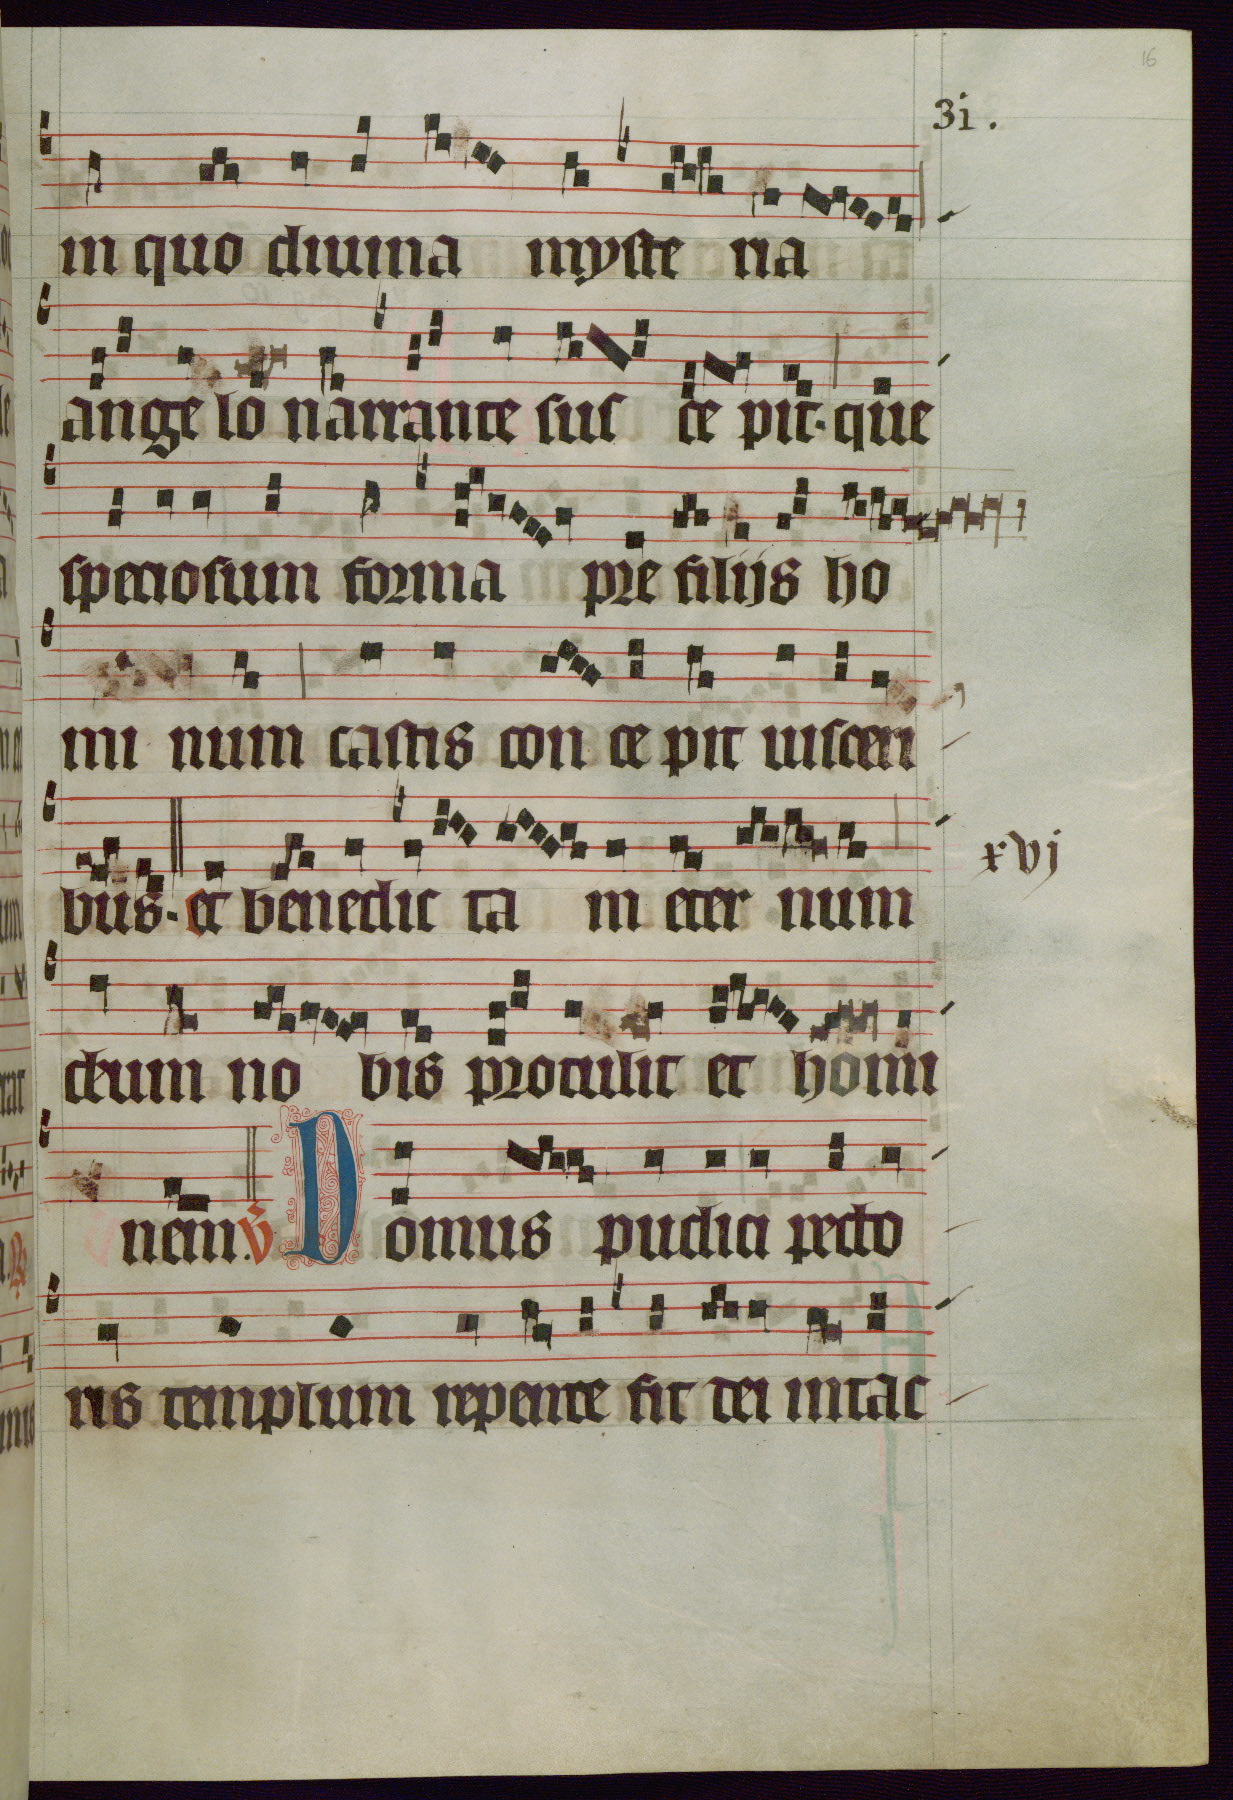 16
31.
in quo diuina myste ria
ange lo narrante sus ce pit. que
speciosum forma pre filijs ho
mi num castis con ce pit uisceri
bus. et benedic ta in eter num
xvj
deum no bis protulit et homi
nem. V Domus pudici pecto
ris templum repente fit dei intac